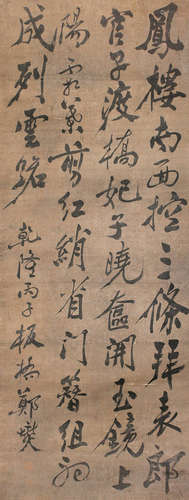 鳳樓南面控三條拜表郎
官早渡橋妃子曉奩開玉鏡上
陽宮葉剪紅綃省门簪組初
成列雲路
乾隆丙子板橋鄭燮